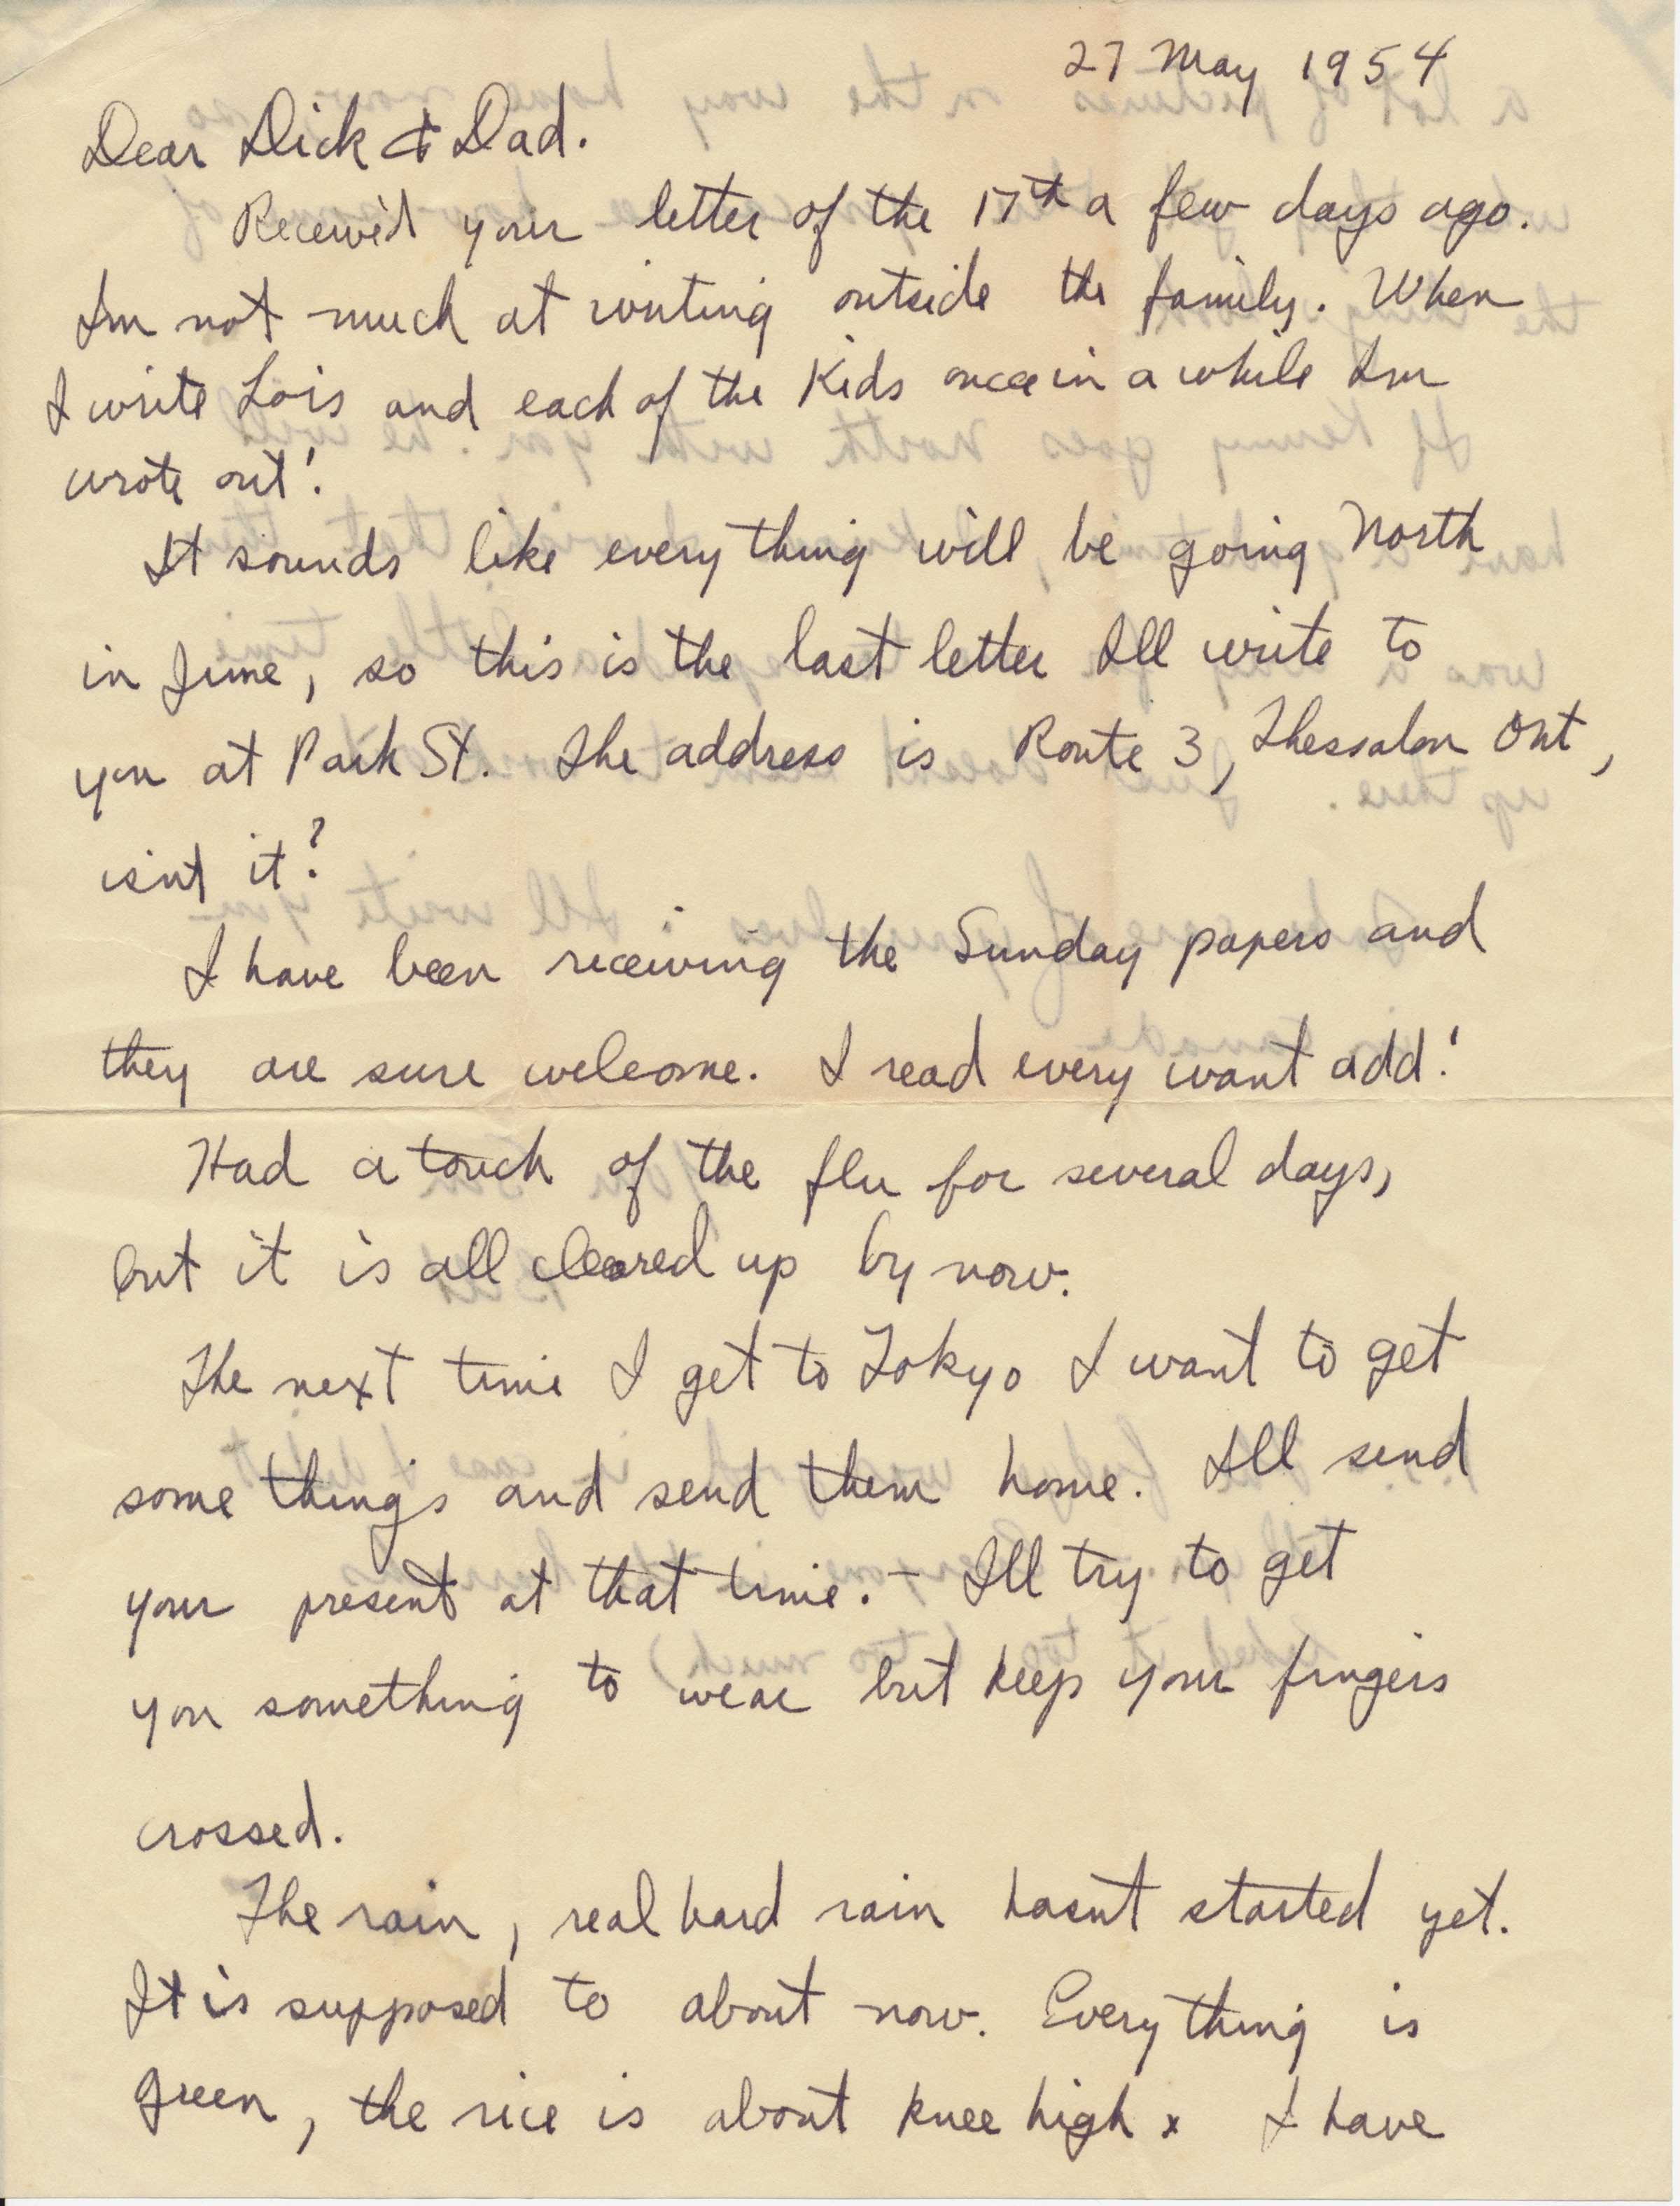 27 May 1954
Dear Dick & Dad.
Receiv'd your letter of the 17th a few days ago.
Im not much at writing outside the family. When
I write Lois and each of the Kids once in a while Im
wrote out!
It sounds like everything will be going North
in June, so this is the last letter Ill write to
you at Park St. The address is Route 3, Thessalon Ont,
isnt it?
I have been receiving the Sunday papers and
they are sure welcome. I read every want add!
Had a touch of the flu for several days,
but it is all cleared up by now.
The next time I get to Tokyo I want to get
some things and send them home. Ill send
your present at that time. - Ill try to get
you something to wear but keep your fingers
crossed.
The rain, real hard rain hasnt started yet.
It is supposed to about now. Everything is
green, the rice is about knee high x I have